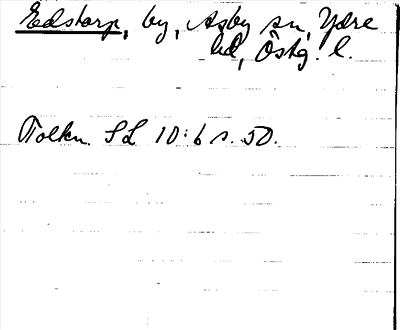 Edstorp, by, Asby sn, Ydre
hd, Östg. l.
Tolkn. SL 10:6 s. 50.